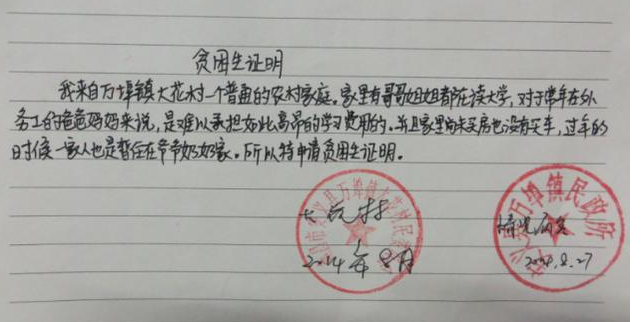 贫困生证明
我来自万埠镇大花村一个普通的农村家庭。家里有哥哥姐姐都在读大学,对于常年在外
务工的爸爸妈妈来说,是难以承担如此高昂的学习费用的。并且家里尚未买房也没有买车,过年的
时候一家人也是暂住在爷爷奶奶家。所以特申请贫困生证明。
情况属实
2014年8月 2014.8.27
万埠镇民政所